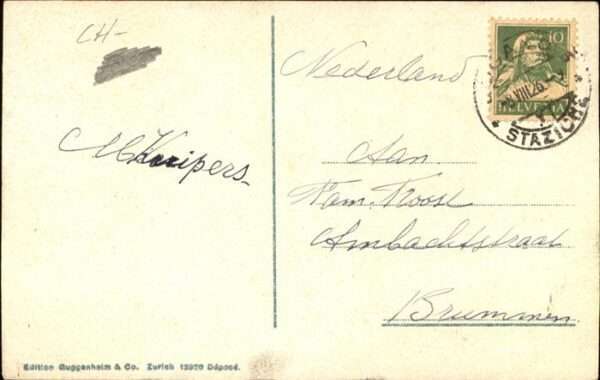 CH-
M Kuipers-
Nederland
Aan.
Fam. Roost
Ambachtstraat
Brummen
10
HELVETIA
VIII.26
STAZIONE
Edition Guggenheim & Co. Zurich 13920 Déposé.